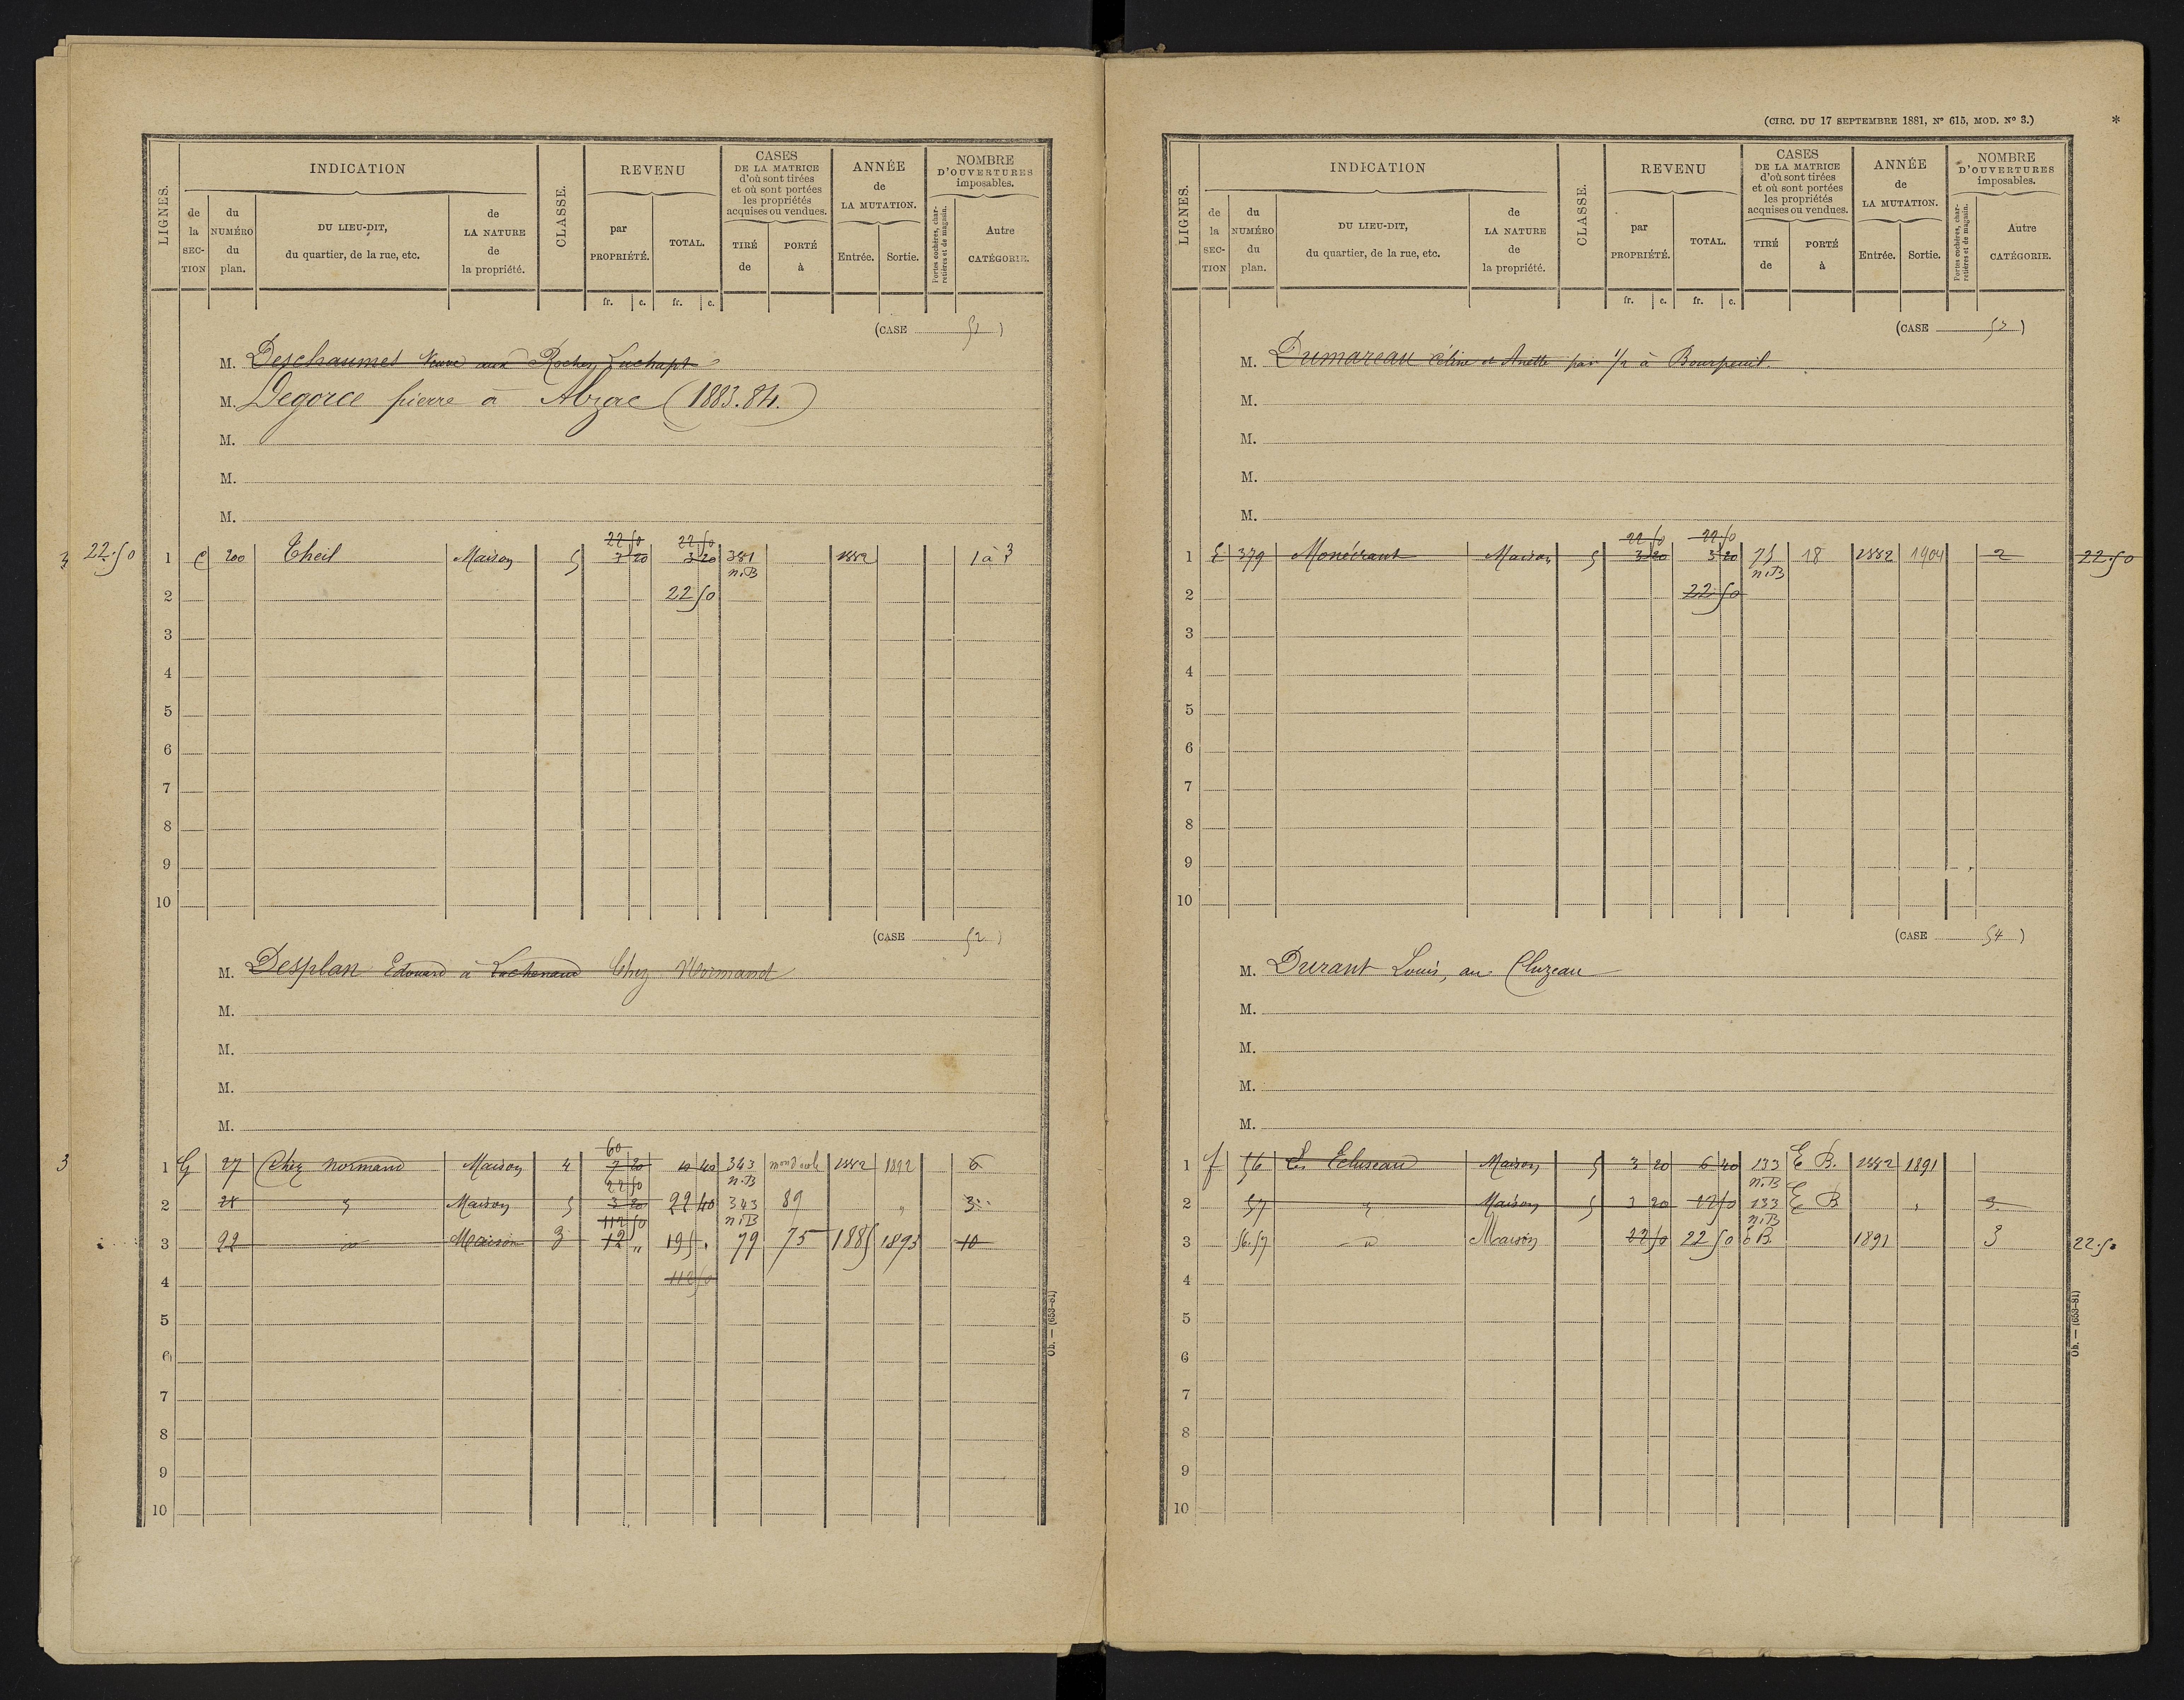 LIGNES.
INDICATION
de la SEC-TION
du NUMÉRO du plan.
DU LIEU-DIT, du quartier, de la rue, etc.
de LA NATURE de la propriété.
CLASSE.
REVENU
par PROPRIÉTÉ.
TOTAL.
fr. c. fr. c.
CASES DE LA MATRICE d'où sont tirées et où sont portées les propriétés acquises ou vendues.
TIRÉ de
PORTÉ à
ANNÉE de LA MUTATION.
Entrée. Sortie.
NOMBRE D'OUVERTURES imposables.
Portes cochères, charretières et de magasin.
Autre CATÉGORIE.
(CASE 51)
M. Deschaumes Veuve aux Roches Luchapt
M. Degorce pierre à Abzac (1883.84.)
M.
M.
M.
22.50
22 50 22 50
1 C 200 Theil Maison 5 3 20 3 20 381 n.B 1882 1 à 3
2 22 50
3
4
5
6
7
8
9
10
(CASE 52)
M. Desplan Edouard à Luchenaud Chez Normand
M.
M.
M.
M.
60
3 1 G 27 Chez normand Maison 4 7 20 10 40 343 n.B 1882 1892 6
22 50
2 28 " Maison 5 3 20 22 40 343 n.B 89 " 3
112 50
3 22 do Maison 3 12 " 195 " 79 75 1885 1893 10
4 112 50
5
6
7
8
9
10
Ob. — (653-81)
(CIRC. DU 17 SEPTEMBRE 1881, N° 615, MOD. N° 3.)
*
LIGNES.
INDICATION
de la SEC-TION
du NUMÉRO du plan.
DU LIEU-DIT, du quartier, de la rue, etc.
de LA NATURE de la propriété.
CLASSE.
REVENU
par PROPRIÉTÉ.
TOTAL.
fr. c. fr. c.
CASES DE LA MATRICE d'où sont tirées et où sont portées les propriétés acquises ou vendues.
TIRÉ de
PORTÉ à
ANNÉE de LA MUTATION.
Entrée. Sortie.
NOMBRE D'OUVERTURES imposables.
Portes cochères, charretières et de magasin.
Autre CATÉGORIE.
(CASE 53)
M. Dumareau Céline et Anette par 1/2 à Bourpeuil.
M.
M.
M.
M.
22 50 22 50
1 E 379 Monécrant Maison 5 3 20 3 20 75 n.B 18 1882 1904 2 22.50
2 22 50
3
4
5
6
7
8
9
10
(CASE 54)
M. Durant Louis, au Cluzeau
M.
M.
M.
M.
1 f 56 Les Ecluseaud Maison 5 3 20 6 40 133 n.B E B. 1882 1891
2 57 " Maison 5 3 20 22 50 133 n.B E B " 3
3 56.57 d Maison 22 50 22 50 6 B. 1891 3 22.50
4
5
6
7
8
9
10
Ob. — (653-81)